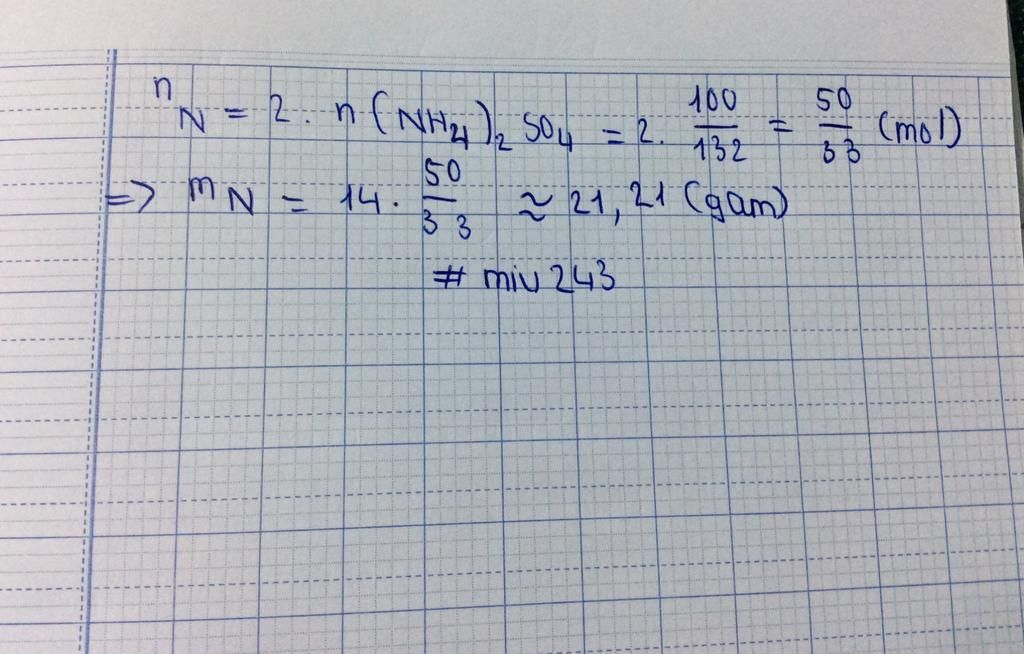 n_N = 2. n(NH₄)₂SO₄ = 2. 100/132 = 50/33 (mol)
=> m_N = 14. 50/33 ≈ 21,21 (gam)
# miu243